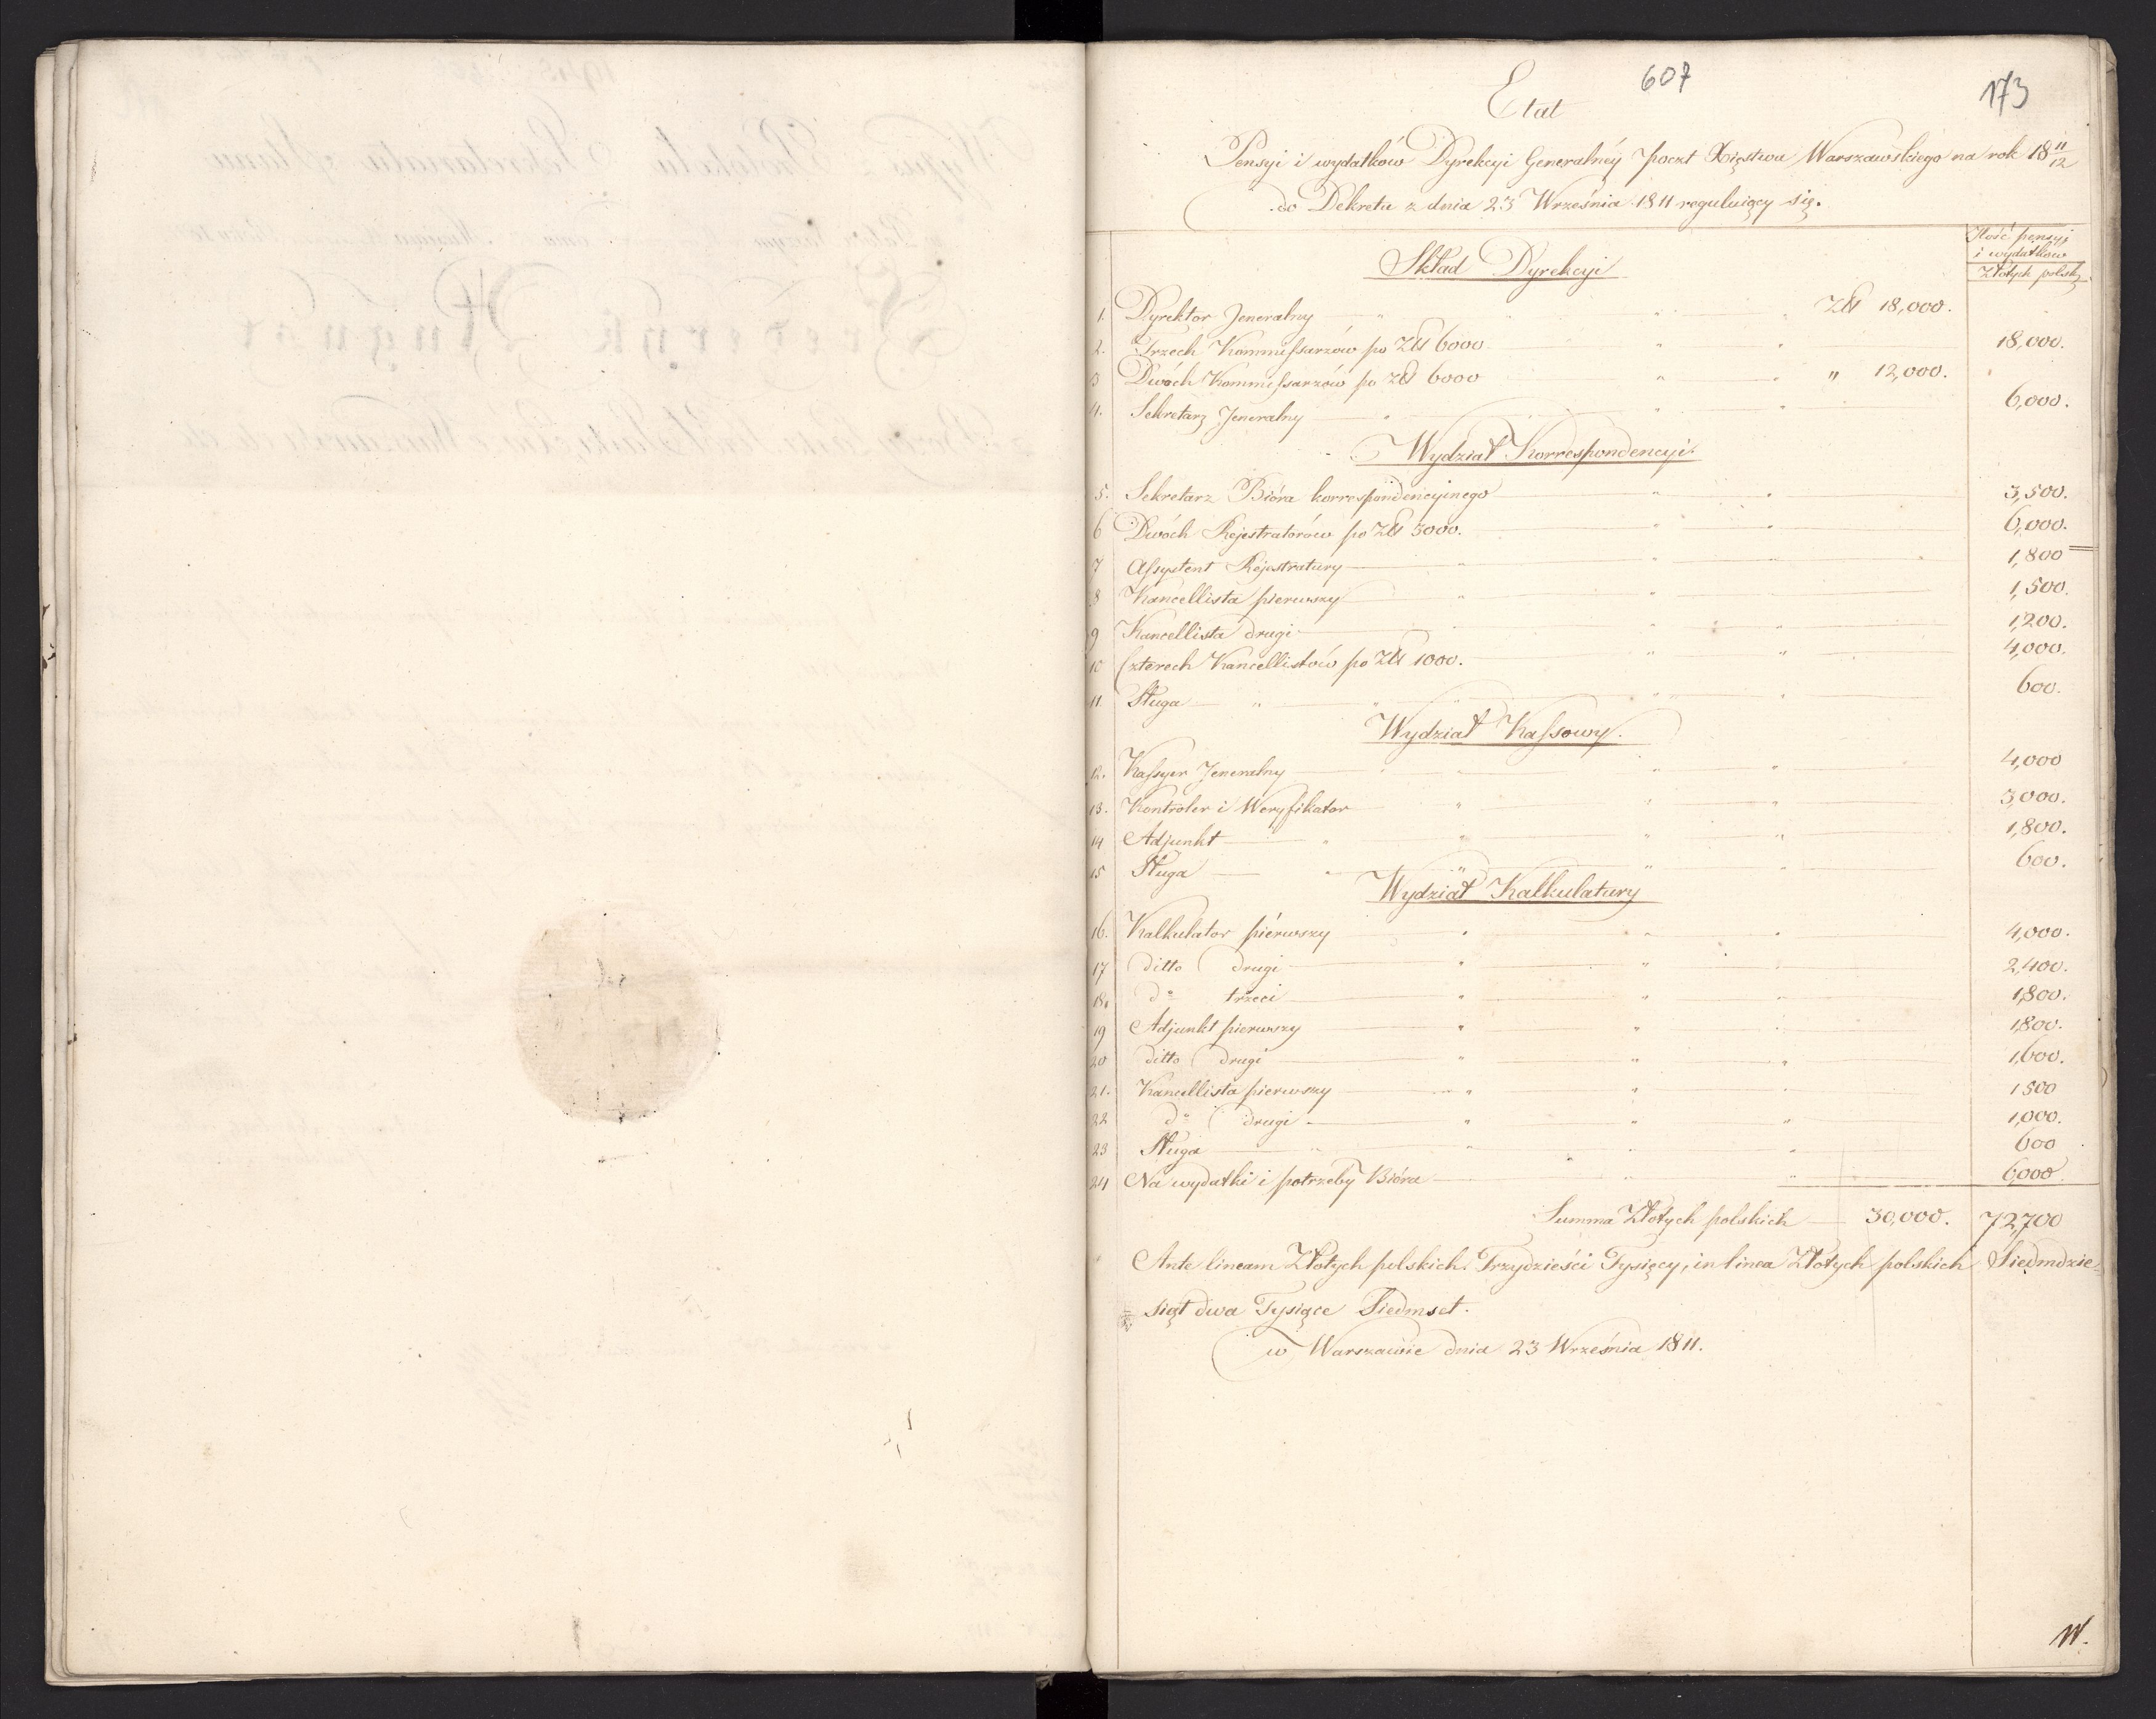 607
173
Etat
Pensyi i wydatków Dyrekcyi Generalnéy Poczt Xięstwa Warszawskiego na rok 18 11/12
do Dekretu z dnia 23 Września 1811 reguluiący się.
Ilość pensyi
i wydatków
Złotych polskich
Skład Dyrekcyi
1. Dyrektor Jeneralny Złł 18,000.
2. Trzech Kommissarzów po Złł 6000 18,000.
3 Dwóch Kommissarzów po Złł 6000 " 12,000.
4. Sekretarz Jeneralny 6,000.
Wydział Korrespondencyi.
5. Sekretarz Bióra korrespondencyinego 3,500.
6 Dwóch Rejestratorów po Złł 3000. 6,000.
7 Assystent Rejestratury 1,800
8 Kancellista pierwszy 1,500.
9 Kancellista drugi 1,200.
10 Czterech Kancellistów po Złł 1000. 4,000.
11. Sługa 600.
Wydział Kassowy.
12. Kassyer Jeneralny 4,000
13. Kontroler i Weryfikator 3,000.
14 Adjunkt 1,800.
15 Sługa 600.
Wydział Kalkulatury
16. Kalkulator piérwszy 4,000.
17 ditto drugi 2,400.
18. do trzeci 1,800.
19 Adjunkt pierwszy 1,800.
20 ditto drugi 1,600.
21. Kancellista pierwszy 1500
22 do drugi 1,000.
23 Sługa 600
24 Na wydatki i potrzeby Bióra 6,000.
Summa Złotych polskich 30,000. 72,700
Ante lineam Złotych polskich Trzydzieści Tysięcy, in linea Złotych polskich Siedmdzie-
siąt dwa Tysiące Siedmset.
w Warszawie dnia 23 Września 1811.
W.